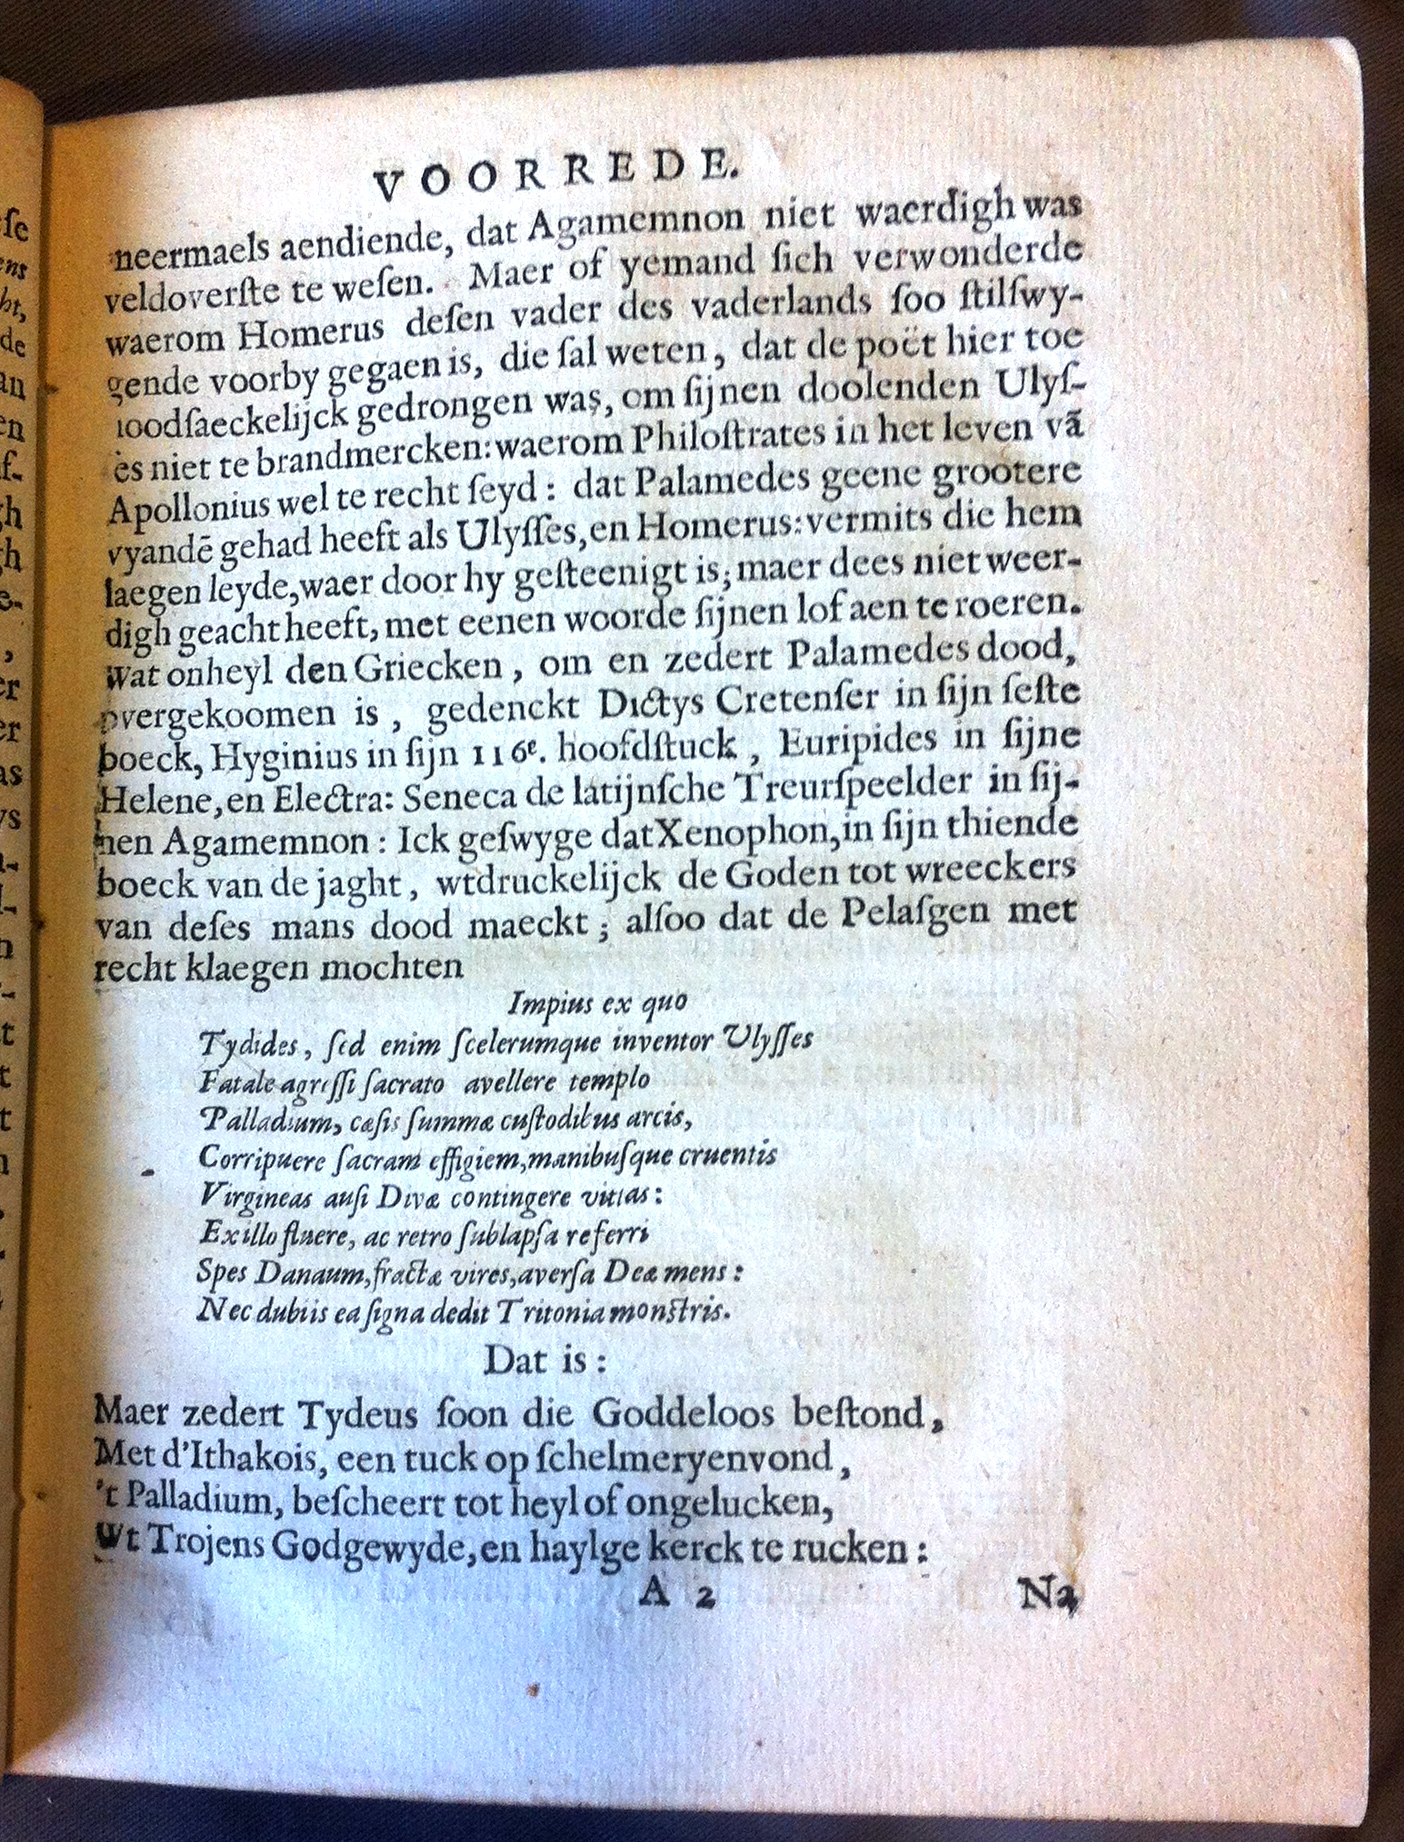 VOORREDE.
neermaels aendiende, dat Agamemnon niet waerdigh was
veldoverſte te weſen. Maer of yemand ſich verwonderde
waerom Homerus deſen vader des vaderlands ſoo ſtilſwy-
gende voorby gegaen is, die ſal weten, dat de poët hier toe
noodſaeckelijck gedrongen was, om ſijnen doolenden Ulyſ-
ſes niet te brandmercken: waerom Philoſtrates in het leven vã
Apollonius wel te recht ſeyd: dat Palamedes geene grootere
vyandē gehad heeft als Ulyſſes, en Homerus: vermits die hem
laegen leyde, waer door hy geſteenigt is; maer dees niet weer-
digh geacht heeft, met eenen woorde ſijnen lof aen te roeren.
Wat onheyl den Griecken, om en zedert Palamedes dood,
overgekoomen is, gedenckt Dictys Cretenſer in ſijn ſeſte
boeck, Hyginius in ſijn 116e. hoofdſtuck, Euripides in ſijne
Helene, en Electra: Seneca de latijnſche Treurſpeelder in ſij-
nen Agamemnon: Ick geſwyge dat Xenophon, in ſijn thiende
boeck van de jaght, wtdruckelijck de Goden tot wreeckers
van deſes mans dood maeckt; alſoo dat de Pelaſgen met
recht klaegen mochten
Impius ex quo
Tydides, ſed enim ſcelerumque inventor Ulyſſes
Fatale agreſſi ſacrato avellere templo
Palladium, cæſis ſummæ cuſtodibus arcis,
Corripuere ſacram effigiem, manibuſque cruentis
Virgineas auſi Divæ contingere vittas:
Ex illo fluere, ac retro ſublapſa referri
Spes Danaum, fractæ vires, averſa Deæ mens:
Nec dubiis ea ſigna dedit Tritonia monſtris.
Dat is:
Maer zedert Tydeus ſoon die Goddeloos beſtond,
Met d'Ithakois, een tuck op ſchelmeryenvond,
't Palladium, beſcheert tot heyl of ongelucken,
Wt Trojens Godgewyde, en haylge kerck te rucken:
A 2 Na